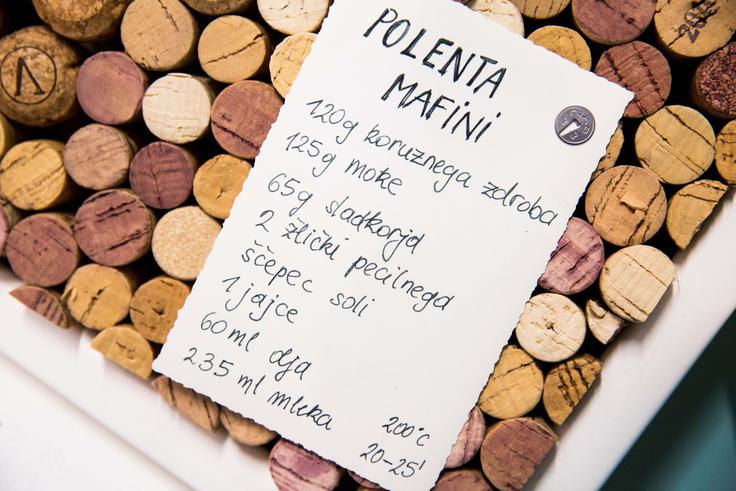 POLENTA
MAFINI
120g koruznega zdroba
125g moke
65g sladkorja
2 žlički pecilnega
ščepec soli
1 jajce
60ml olja
235 ml mleka
200°C
20-25'